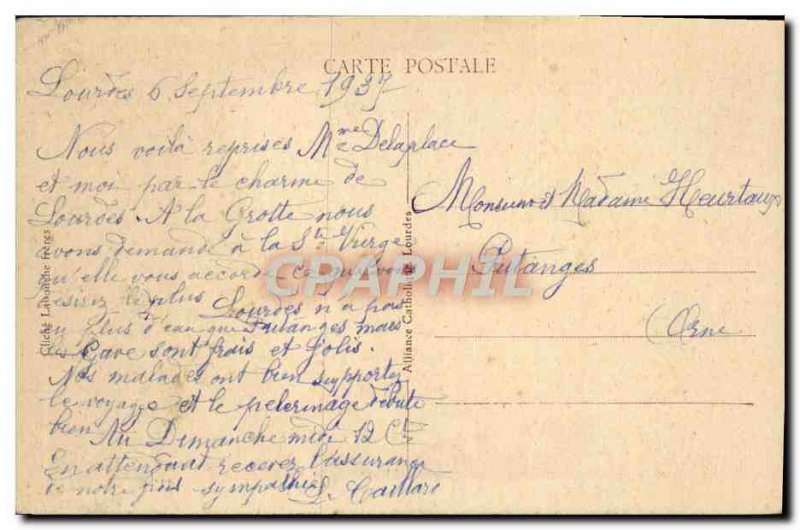 CARTE POSTALE
Lourdes 6 Septembre 1937
Nous voilà reprises Mme Delaplace
et moi par le charme de
Lourdes. A la Grotte nous
avons demandé à la Ste Vierge
qu'elle vous accorde ce que vous
désirez le plus Lourdes n'a pas
plus d'eau que Putanges mais
Gave sont frais et jolis.
Nos malades ont bien supporté
le voyage et le pelerinage débute
bien Au Dimanche midi 12
En attendant recevez l'assurance
de notre sympathie
Monsieur et Madame Heurtaux
Putanges
(Orne
Cliché Frères
Alliance Catholique Lourdes
CPAPHIL